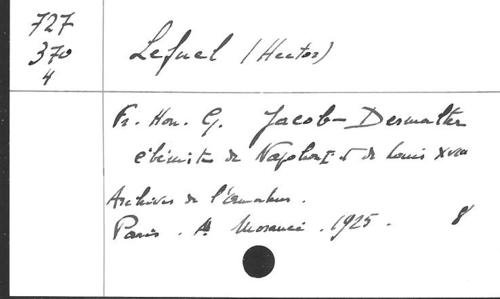 727
370
4
Lefuel (Hector)
Fr. Hon. G. Jacob-Desmalter
ébéniste de Napoléon I et de Louis XVIII
Archives de l'Amateur.
Paris. A. Morancé. 1925. 8°